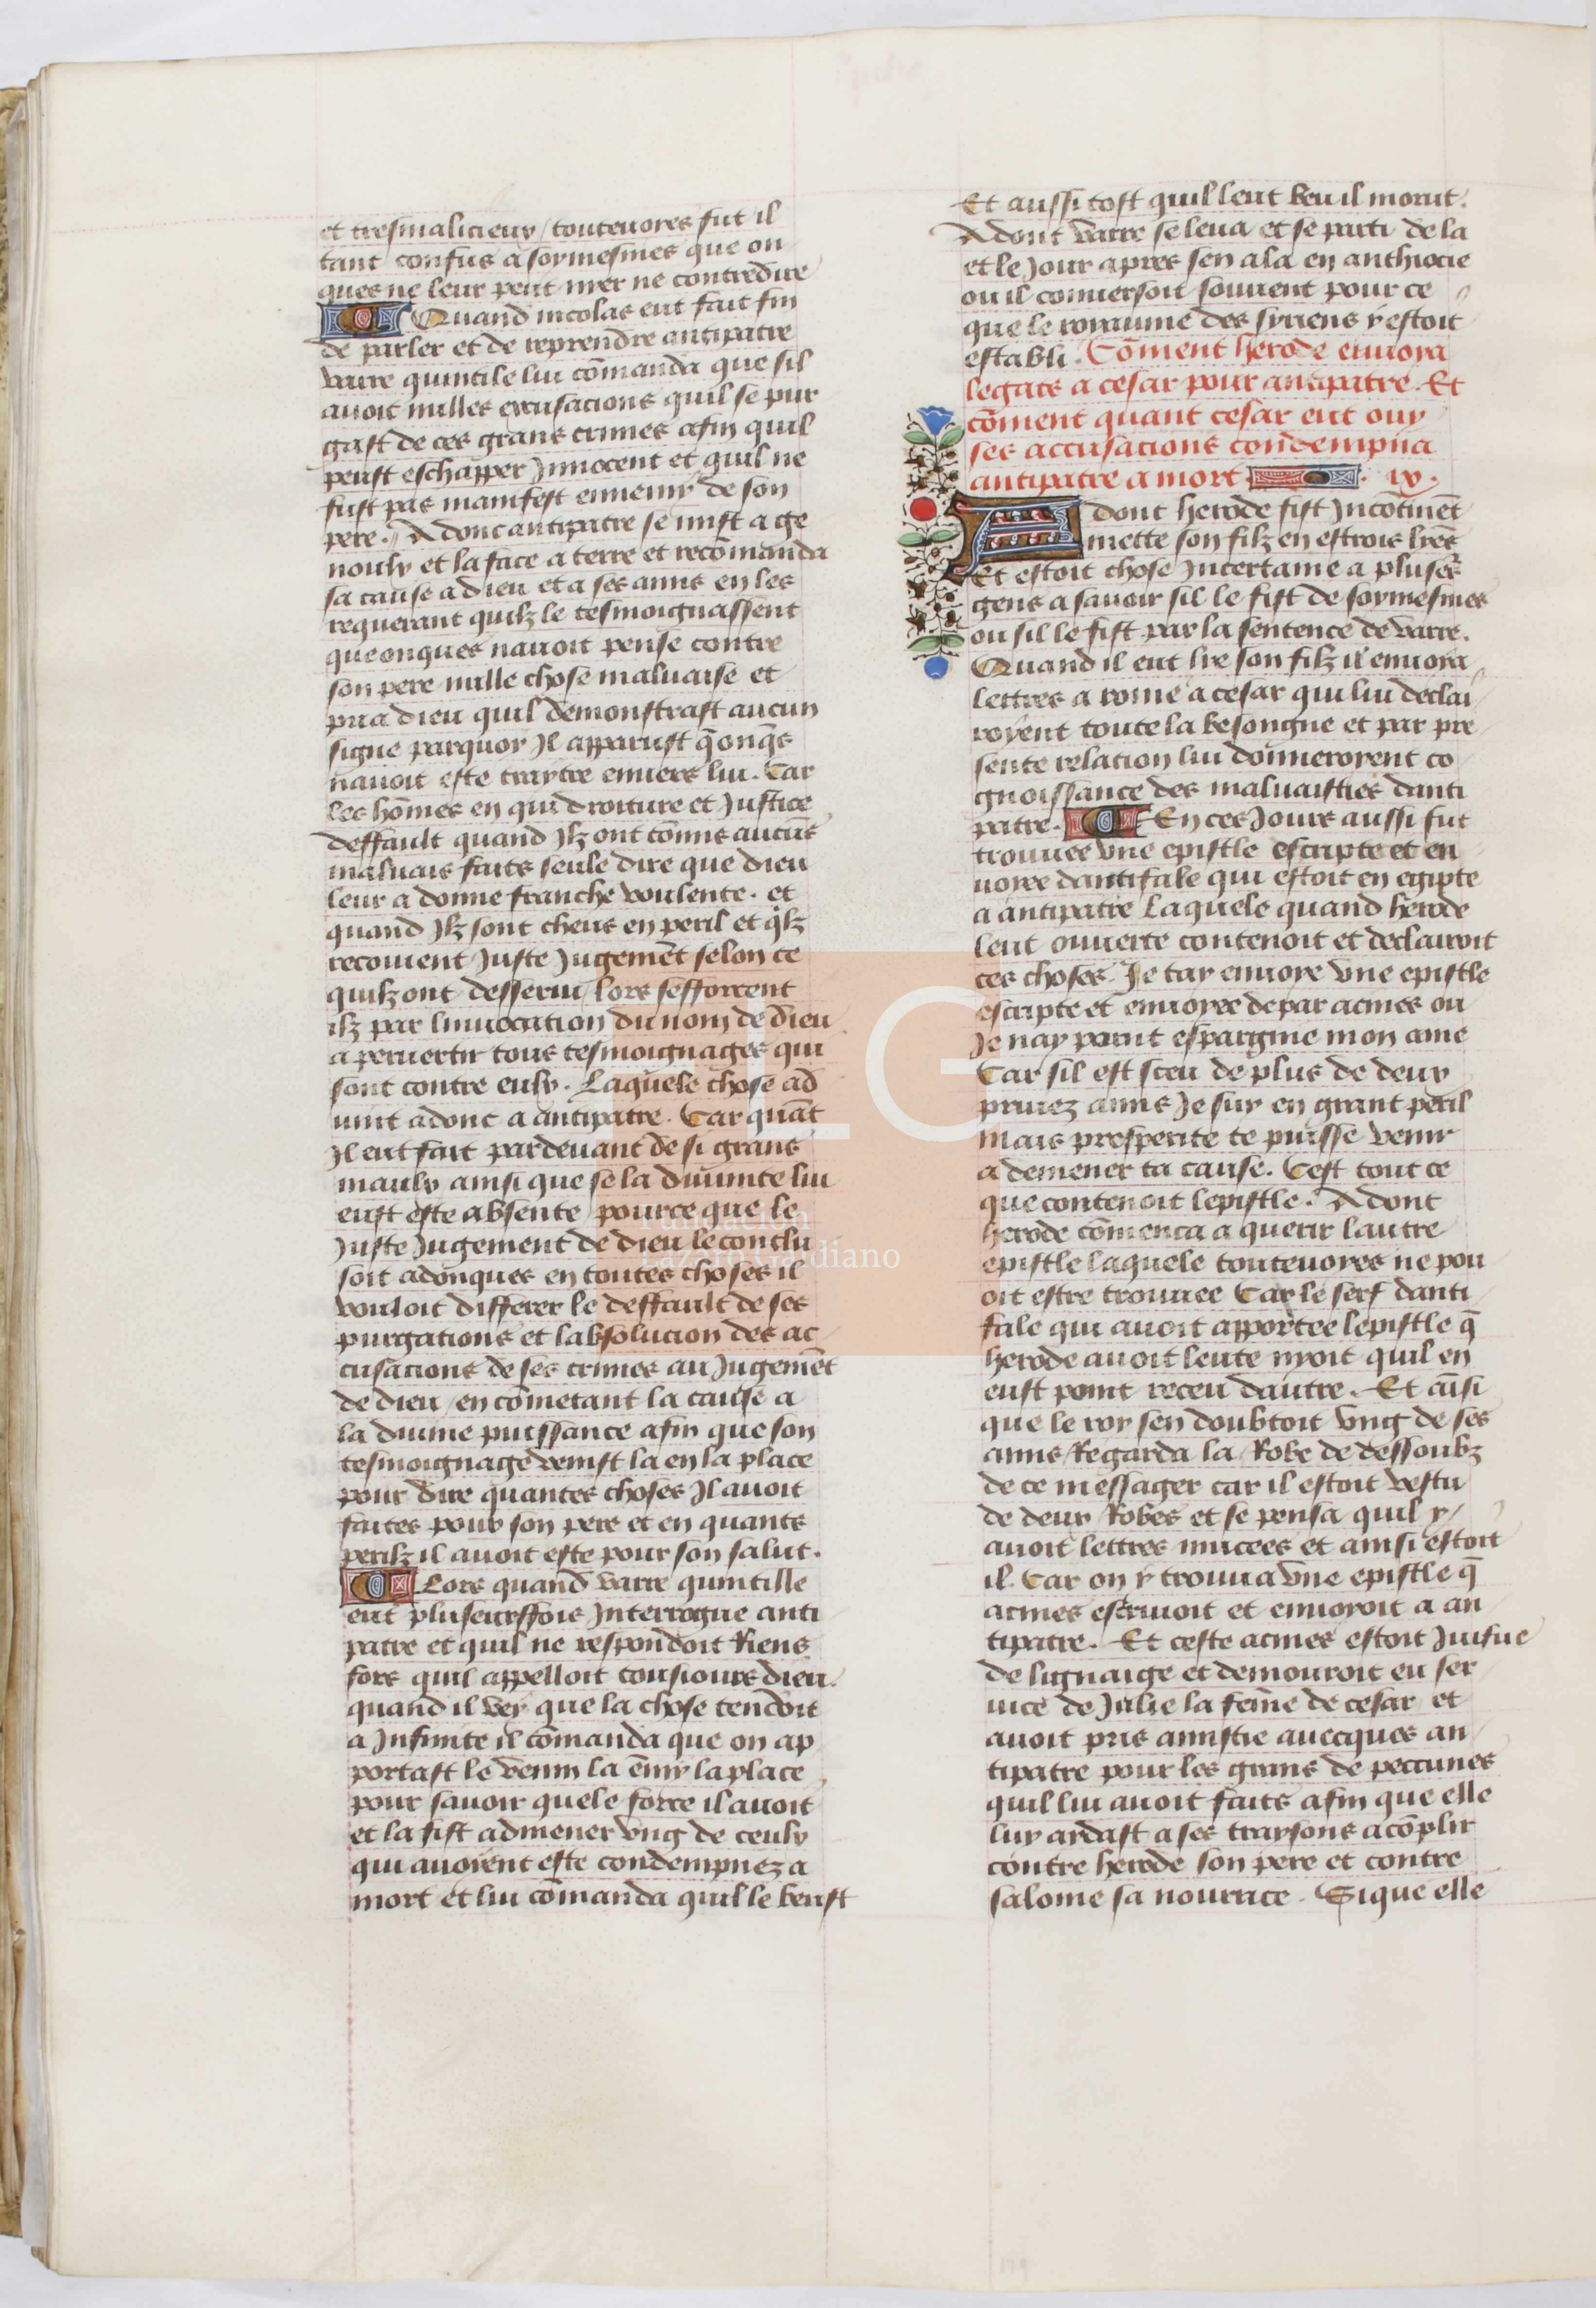 et tresmalicieux / touteuoies fut il
tant confus a soymesmes que on
ques ne leur peut nyer ne contredire
Quand nicolas eut fait fin
de parler et de reprendre antipatre
varre quintile lui cōmanda que sil
auoit nulles excusacions quil se pur
gast de ces grans crimes afin quil
peust eschapper Jnnocent et quil ne
fust pas manifest ennemy de son
pere. Adonc antipatre se mist a ge
noulx et la face a terre et recōmanda
sa cause a dieu et a ses amis en les
requerant quilz le tesmoignassent
que onques nauoit pense contre
son pere nulle chose maluaise et
pria dieu quil demonstrast aucun
signe parquoy Jl apparust q̄ onq̄s
nauoit este traytre enuers lui. Car
les hōmes en qui droiture et Justice
deffault quand Jlz ont cōmis aucūs
maluais faits seule dire que dieu
leur a donne franche voulente. et
quand Jlz sont cheus en peril et q̄lz
recoiuent Juste Jugemēt selon ce
quilz ont desserui / lors sefforcent
ilz par linuocation du nom de dieu
a peruertir tous tesmoignages qui
sont contre eulx. Laquele chose ad
uint adonc a antipatre. Car quāt
Jl eut fait pardeuant de si grans
maulx ainsi que se la diuinite lui
eust este absente / pource que le
Juste Jugement de dieu le conclu
soit adonques en toutes choses il
vouloit differer le deffault de ses
purgations et labsolucion des ac
cusacions de ses crimes au Jugemēt
de dieu / en cōmetant la cause a
la diuine puissance afin que son
tesmoignage venist la en la place
pour dire quantes choses Jl auoit
faites pour son pere et en quants
perilz il auoit este pour son salut.
Lors quand varre quintille
eut pluseursfois Jnterrogue anti
patre et quil ne respondoit Riens
fors quil appelloit tousiours dieu.
quand il vey que la chose tendoit
a Jnfinite il cōmanda que on ap
portast le venin la ēmy la place
pour sauoir quele force il auoit
et la fist admener vng de ceulx
qui auoient este condempnez a
mort et lui cōmanda quil le beust
Et aussi tost quil leut beu il morut.
Adont varre se leua et se parti de la
et le Jour apres sen ala en anthiocie
ou il conuersoit souuent pour ce
que le royaume des syriens y estoit
establi. Cōment herode enuoya
legats a cesar pour antipatre. Et
cōment quant cesar eut ouy
ses accusacions condempna
antipatre a mort. ix.
Adont herode fist Jncōtinēt
mettre son filz en estrois lyēs
Et estoit chose Jncertaine a pluseʳs
gens a sauoir sil le fist de soymesmes
ou sil le fist par la sentence de varre.
Quand il eut lye son filz il enuoya
lettres a rome a cesar qui lui declai
royent toute la besongne et par pre
sente relation lui donneroyent co
gnoissance des maluaisties danti
patre. En ces Jours aussi fut
trouuee vne epistle escripte et en
uoyee dantifale qui estoit en egipte
a antipatre Laquele quand herode
leut ouuerte contenoit et declairoit
ces choses. Je tay enuoye vne epistle
escripte et enuoyee depar acmes ou
Je nay point espargnie mon ame
Car sil est sceu de plus de deux
priuez amis Je suy en grant peril
Mais prosperite te puisse venir
a demener ta cause. Cest tout ce
que contenoit lepistle. Adont
herode cōmenca a querir lautre
epistle laquele touteuoyes ne pou
oit estre trouuee Car le serf danti
fale qui auoit apportee lepistle q̄
herode auoit leute nyoit quil en
eust point receu dautre. Et aīsi
que le roy sen doubtoit vng de ses
amis Regarda la Robe de dessoubz
de ce messager car il estoit vestu
de deux Robes et se pensa quil y
auoit lettres mucees et ainsi estoit
il. Car on y trouua vne epistle q̄
acmes escriuoit et enuoyoit a an
tipatre. Et ceste acmes estoit Juifue
de lignaige et demouroit eu ser
uice de Julie la femē de cesar et
auoit pris amistie auecques an
tipatre pour les grans de peccunes
quil lui auoit faits afin que elle
luy aidast a ses traysons acōplir
contre herode son pere et contre
salome sa nourrice. Si que elle
FLG
Fundación
Lázaro Galdiano